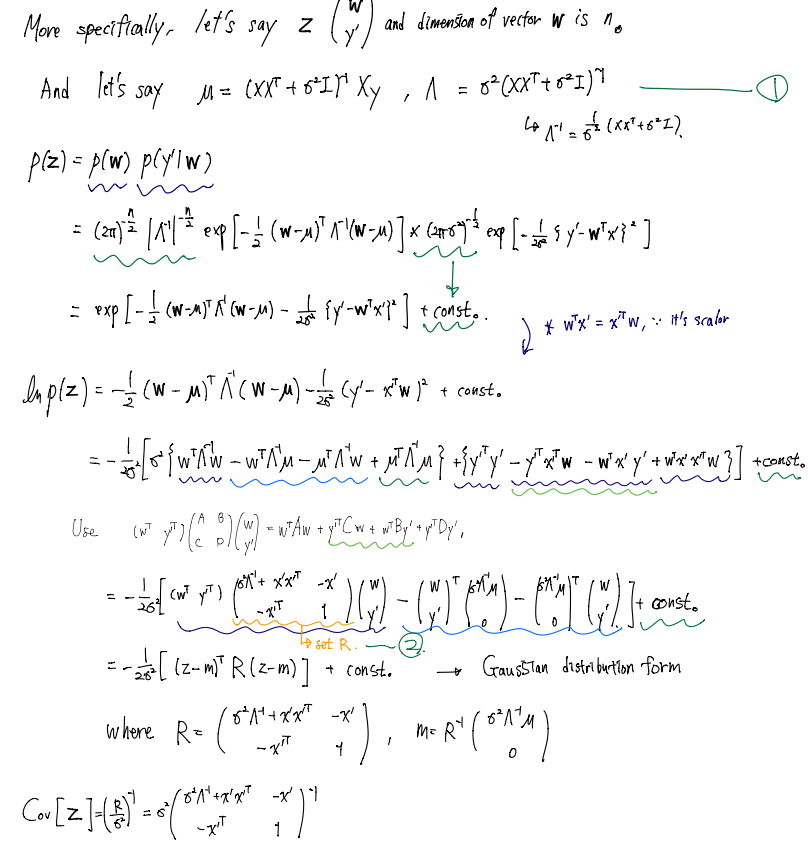 More specifically, let's say z (w y') and dimension of vector w is n.
And let's say μ = (XXᵀ + σ²I)⁻¹ Xy , Λ = σ²(XXᵀ + σ²I)⁻¹ ①
↳ Λ⁻¹ = 1/σ² (XXᵀ + σ²I).
p(z) = p(w) p(y'|w)
= (2π)^(-n/2) |Λ⁻¹|^(-n/2) exp[-1/2 (w-μ)ᵀ Λ⁻¹(w-μ)] × (2πσ²)^(-1/2) exp[-1/2σ² {y'-wᵀx'}²]
= exp[-1/2 (w-μ)ᵀΛ⁻¹(w-μ) - 1/2σ² {y'-wᵀx'}²] + const.
* wᵀx' = x'ᵀw, ∵ it's scalar
ln p(z) = -1/2 (w-μ)ᵀ Λ⁻¹ (w-μ) - 1/2σ² (y' - x'ᵀw)² + const.
= -1/2σ² [σ²{wᵀΛ⁻¹w - wᵀΛ⁻¹μ - μᵀΛ⁻¹w + μᵀΛ⁻¹μ} + {y'ᵀy' - y'ᵀx'ᵀw - wᵀx'y' + wᵀx'x'ᵀw}] + const.
Use (wᵀ y'ᵀ) (A B C D) (w y') = wᵀAw + y'ᵀCw + wᵀBy' + y'ᵀDy',
= -1/2σ² [(wᵀ y'ᵀ) (σ²Λ⁻¹ + x'x'ᵀ -x' -x'ᵀ 1) (w y') - (w y')ᵀ (σ²Λ⁻¹μ 0) - (σ²Λ⁻¹μ 0)ᵀ (w y')] + const.
↳ set R. ②
= -1/2σ² [(z-m)ᵀ R (z-m)] + const. → Gaussian distribution form
where R = (σ²Λ⁻¹ + x'x'ᵀ -x' -x'ᵀ 1) , m = R⁻¹ (σ²Λ⁻¹μ 0)
Cov[z] = (R/σ²)⁻¹ = σ² (σ²Λ⁻¹ + x'x'ᵀ -x' -x'ᵀ 1)⁻¹